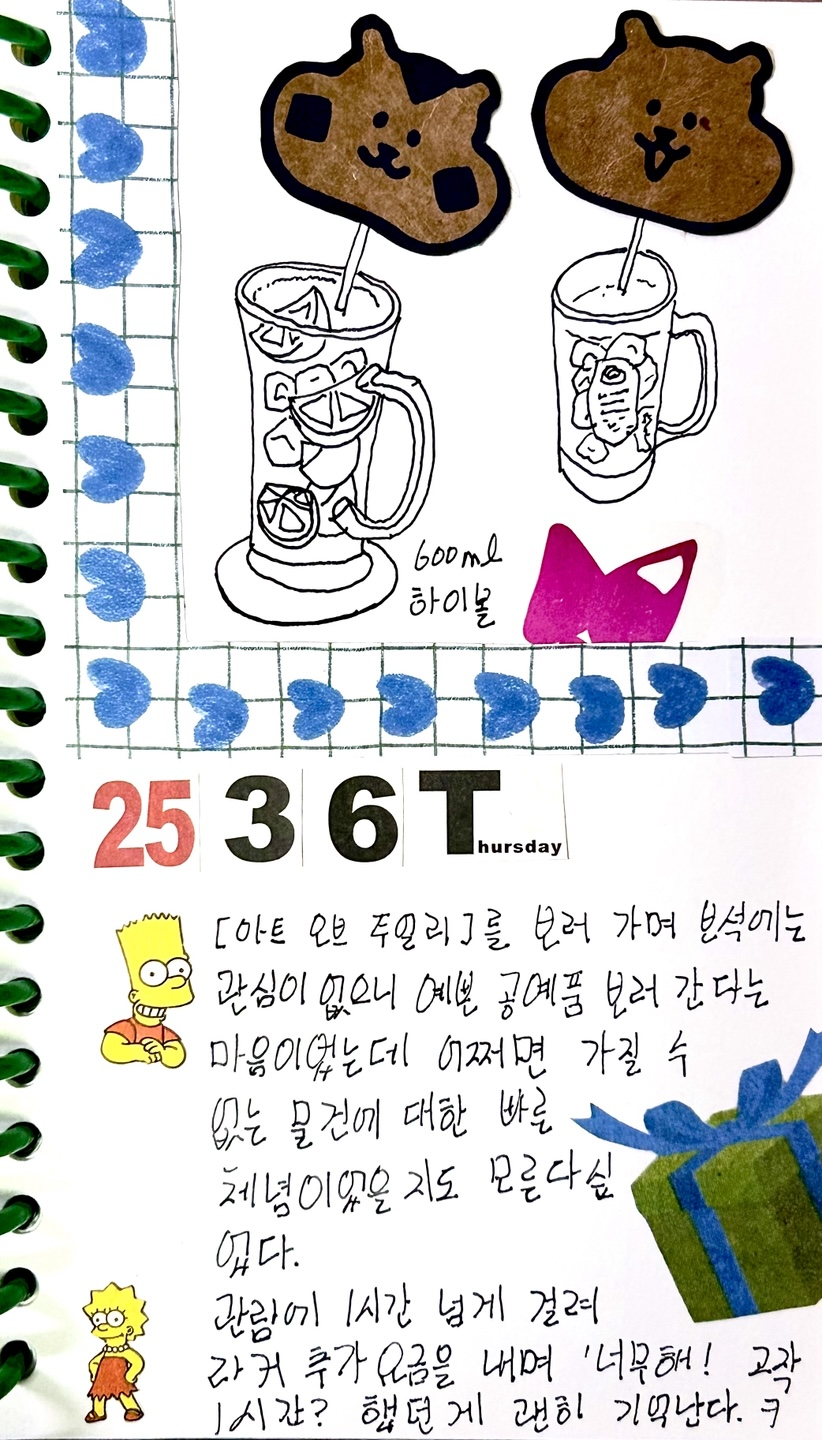 600ml
하이볼
25 3 6 Thursday
[아트 오브 주얼리]를 보러 가며 보석에는
관심이 없으니 예쁜 공예품 보러 간다는
마음이었는데 어쩌면 가질 수
없는 물건에 대한 빠른
체념이었을 지도 모른다 싶
었다.
관람에 1시간 넘게 걸려
라커 추가 요금을 내며 '너무해! 고작
1시간? 했던 게 괜히 기억난다. ㅋ